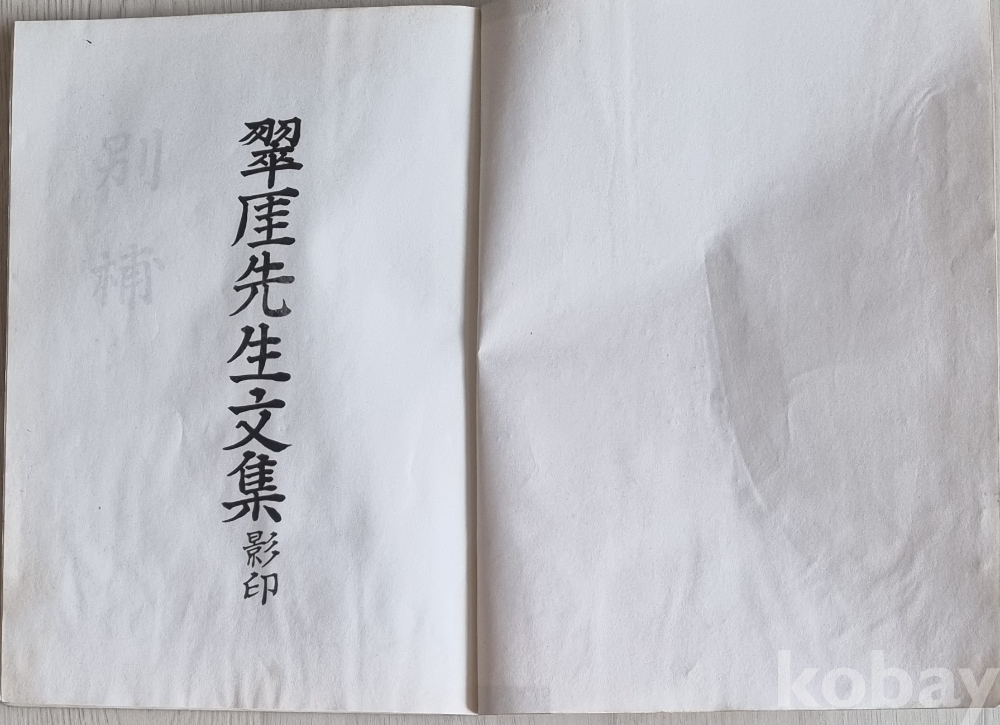 翠厓先生文集影印
別補
kobay